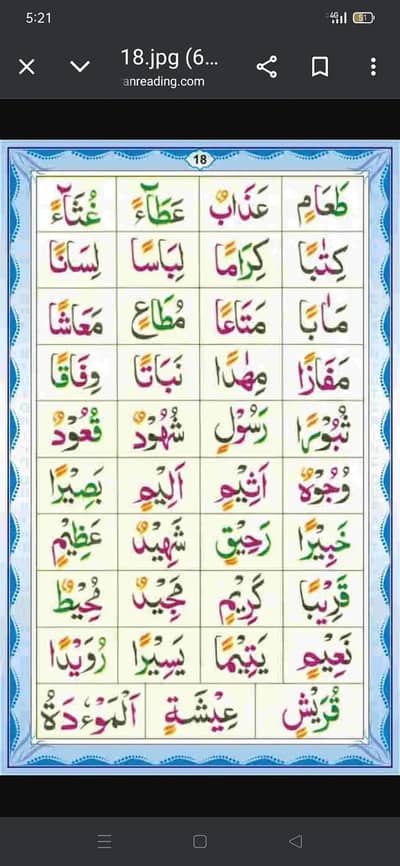 5:21
4G
51
18.jpg (6...
anreading.com
18
طَعَامٍ عَذَابٌ عَطَآءً غُثَآءً
كِتٰبًا كِرَامًا لِبَاسًا لِسَانًا
مَاٰبًا مَتَاعًا مُطَاعٍ مَعَاشًا
مَفَازًا مِهٰدًا نَبَاتًا وِفَاقًا
ثُبُوْرًا رَسُوْلٍ شُهُوْدٌ قُعُوْدٌ
وُجُوْهٌ اَثِيْمٍ اَلِيْمٍ بَصِيْرًا
خَبِيْرًا رَحِيْقٍ شَهِيْدٌ عَظِيْمٍ
قَرِيْبًا كَرِيْمٍ مَجِيْدٌ مُحِيْطٌ
نَعِيْمٍ يَتِيْمًا يَسِيْرًا رُوَيْدًا
قُرَيْشٍ عِيْشَةٍ اَلْمَوْءٗدَةُ